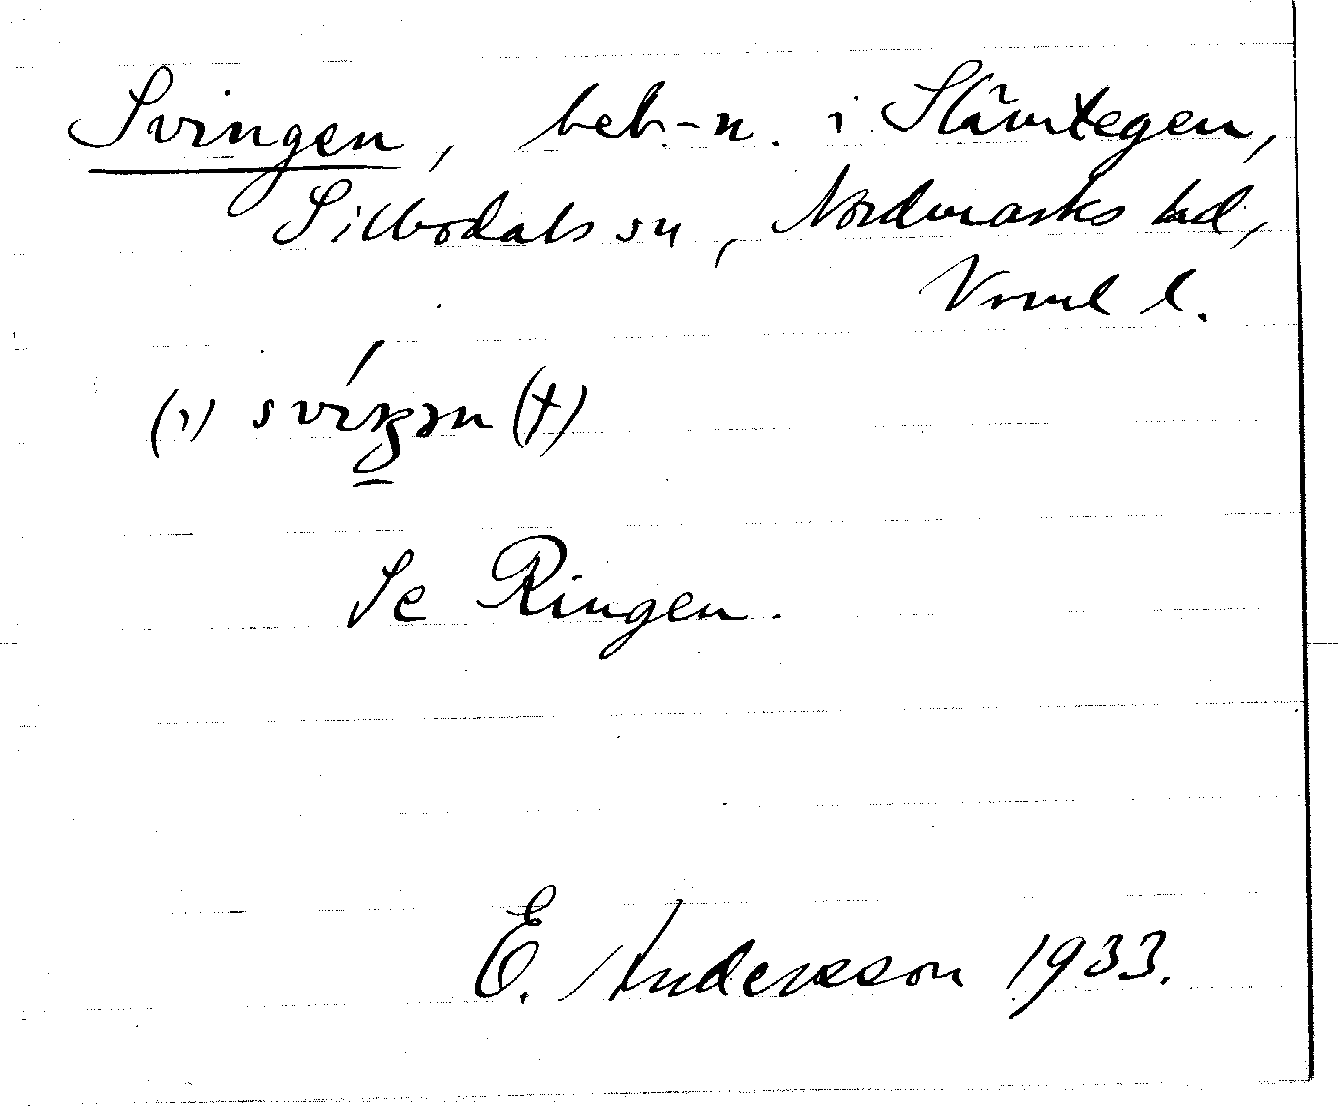 Svingen, beb.-n. i Slämtegen,
Silbodals sn, Nordmarks hd,
Vrml l.
(i)
Se Ringen.
E. Andersson 1933.